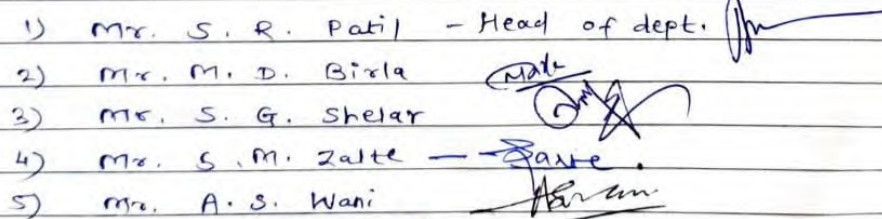 1) Mr. S. R. Patil - Head of dept.
2) Mr. M. D. Birla
3) Mr. S. G. Shelar
4) Mr. S. M. Zalte —
5) Mr. A. S. Wani